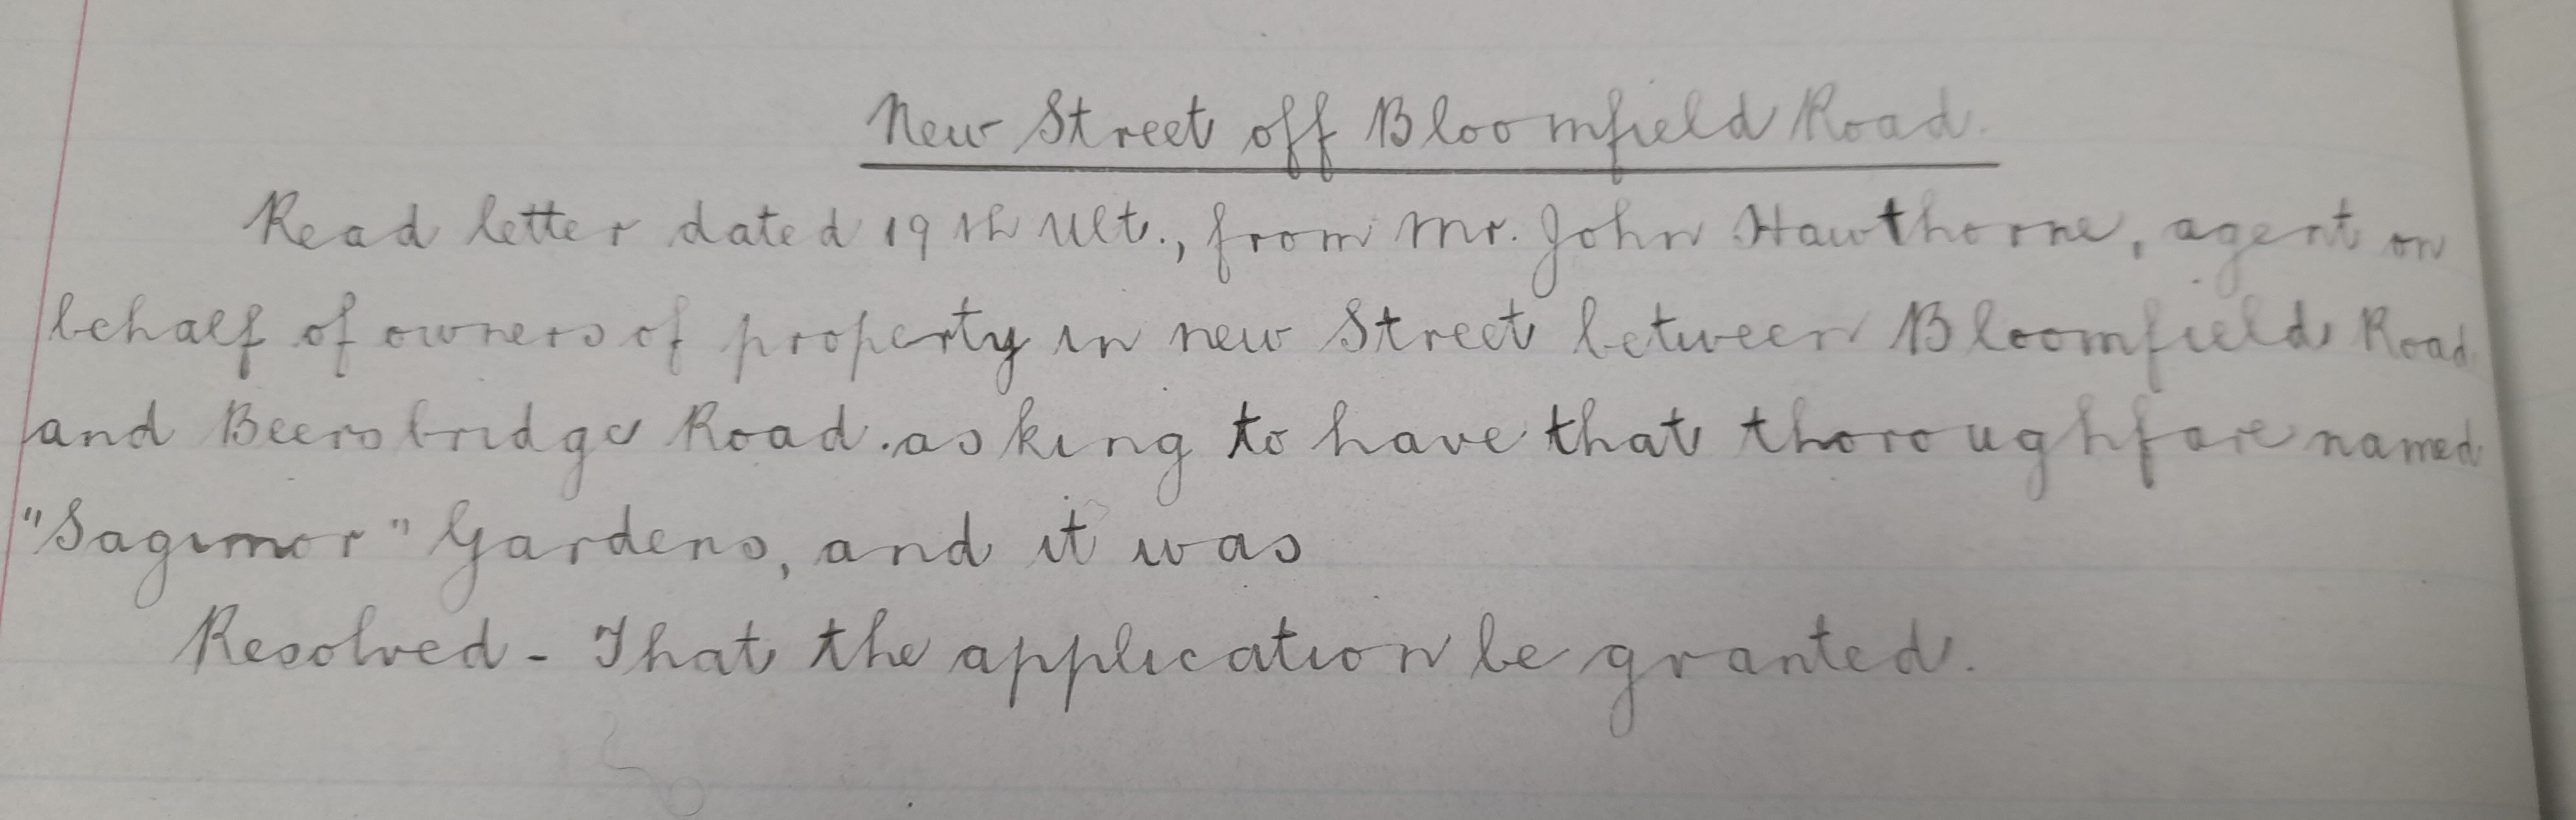 New Street off Bloomfield Road.
Read letter dated 19th ult., from Mr. John Hawthorne, agent on
behalf of owners of property in new Street between Bloomfield Road
and Beersbridge Road. asking to have that thoroughfare named
"Sagimor" Gardens, and it was
Resolved - That the application be granted.